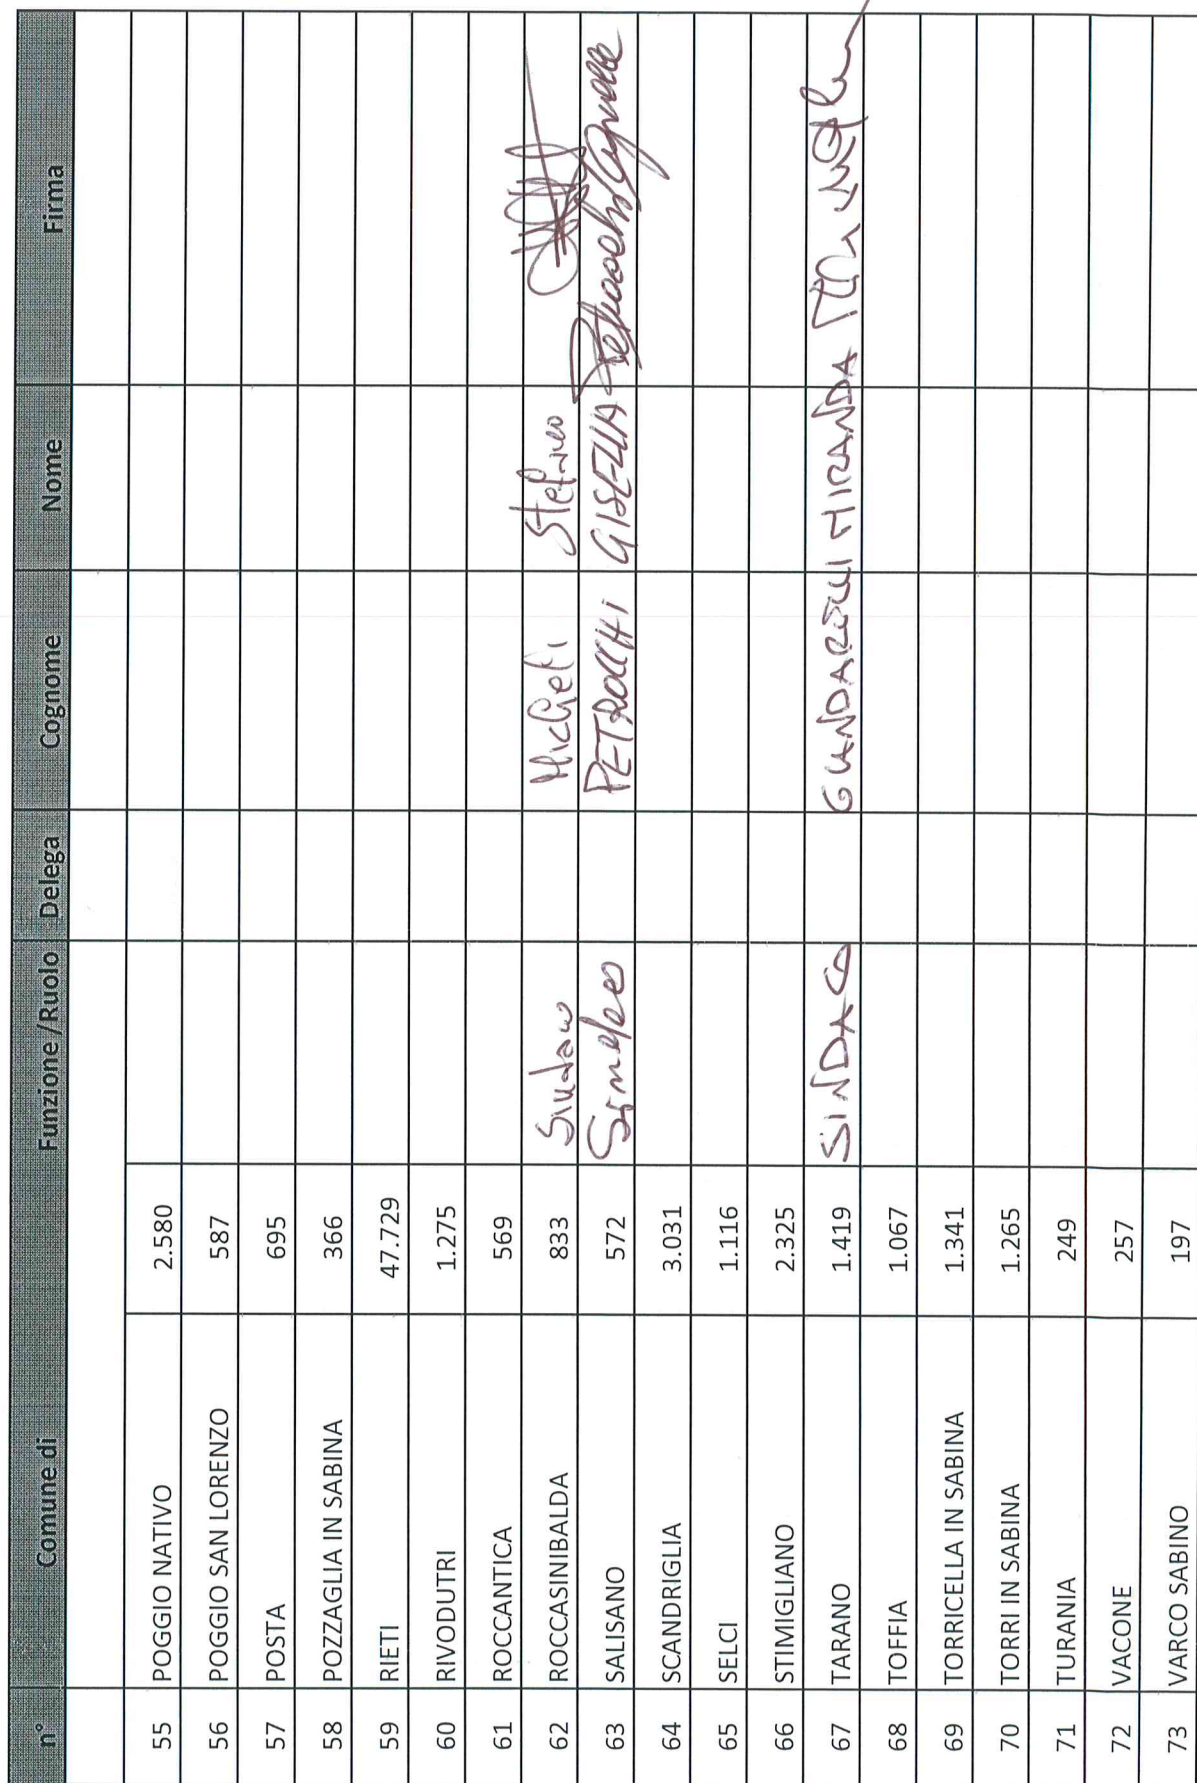 n° Comune di Funzione /Ruolo Delega Cognome Nome Firma
55 POGGIO NATIVO 2.580
56 POGGIO SAN LORENZO 587
57 POSTA 695
58 POZZAGLIA IN SABINA 366
59 RIETI 47.729
60 RIVODUTRI 1.275
61 ROCCANTICA 569
62 ROCCASINIBALDA 833 Sindaco Micheli Stefano
63 SALISANO 572 Sindaco PETROCCHI GISELLA Petrocchi Gisella
64 SCANDRIGLIA 3.031
65 SELCI 1.116
66 STIMIGLIANO 2.325
67 TARANO 1.419 SINDACO MIRANDA
68 TOFFIA 1.067
69 TORRICELLA IN SABINA 1.341
70 TORRI IN SABINA 1.265
71 TURANIA 249
72 VACONE 257
73 VARCO SABINO 197